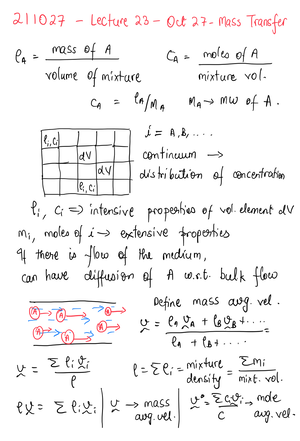 211027 - Lecture 23 - Oct 27 - Mass Transfer
ρ_A = mass of A / volume of mixture    C_A = moles of A / mixture vol.
C_A = ρ_A/M_A    M_A → MW of A.
ρi, Ci    i = A, B, ....
dV    continuum →
dV    distribution of concentration
ρi, Ci
ρi, Ci ⇒ intensive properties of vol. element dV
mi, moles of i → extensive properties
If there is flow of the medium,
can have diffusion of A w.r.t. bulk flow
Define mass avg. vel.
A A A A A A    v = ρ_A v_A + ρ_B v_B + .... / ρ_A + ρ_B + ....
v = Σ ρi vi / ρ    ρ = Σρi = mixture density = Σmi / mixt. vol.
ρv = Σ ρi vi    v → mass avg. vel.    v* = Σ Ci vi / C → mole avg. vel.